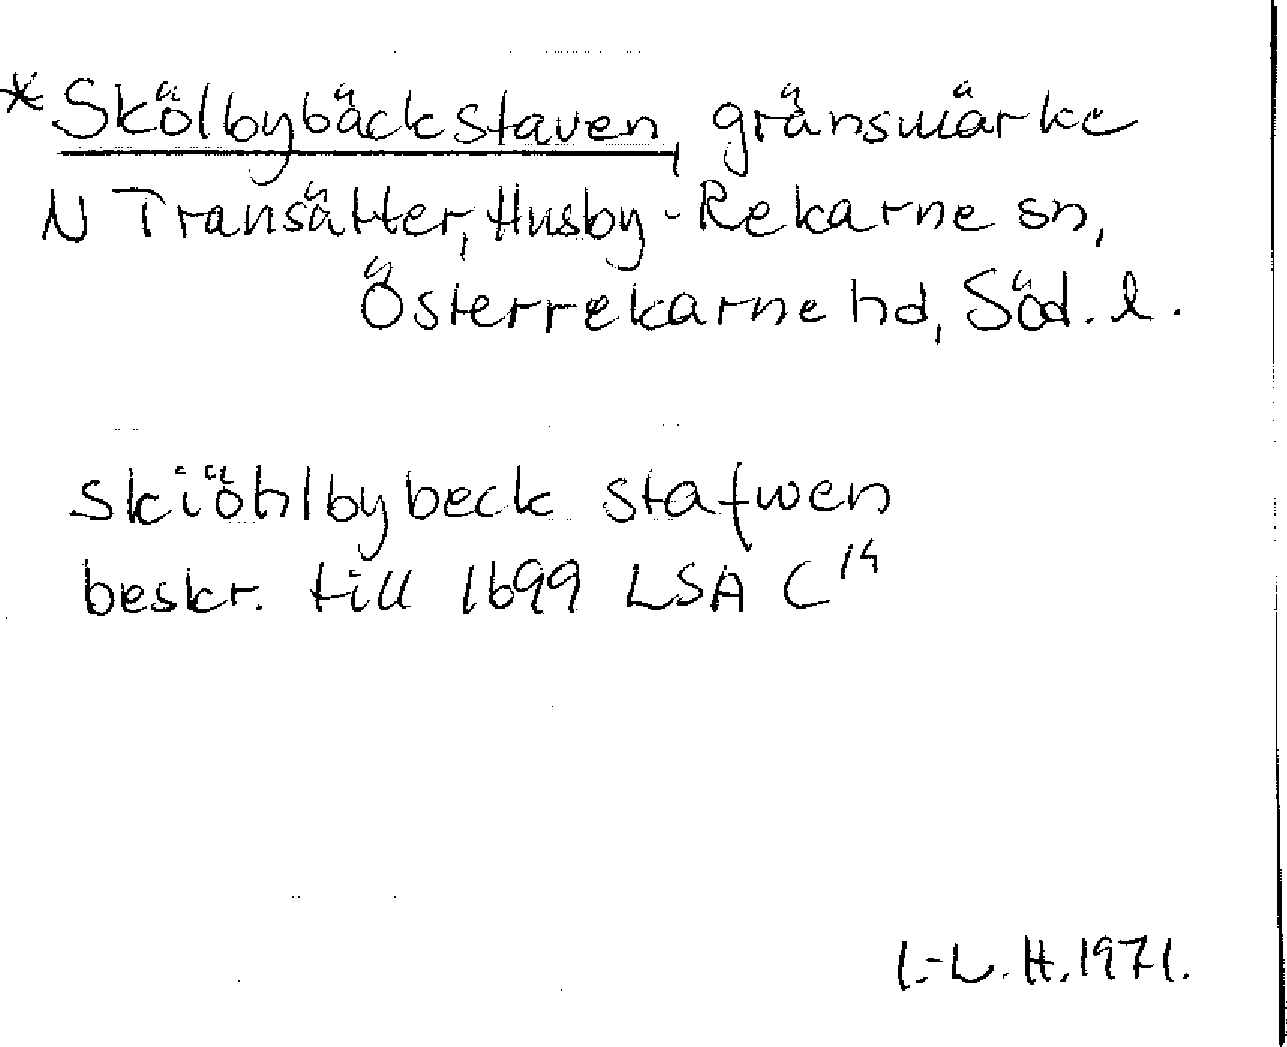 *Skölbybäckstaven, gränsmärke
N Transätter, Husby-Rekarne sn,
Österrekarne hd, Söd. l.
skiöhlbybeck stafwen
beskr. till 1699 LSA C¹⁴
I.-L. H. 1971.